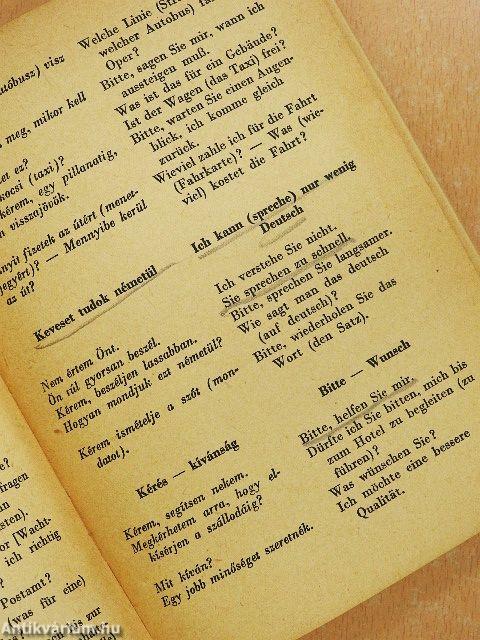 uóbusz) visz
s meg, mikor kell
et ez?
kocsi (taxi)?
kérem, egy pillanatig,
n visszajövök.
nyit fizetek az útért (menet-
jegyért)? — Mennyibe kerül
az út?
Keveset tudok németül
Nem értem Önt.
Ön túl gyorsan beszél.
Kérem, beszéljen lassabban.
Hogyan mondjuk ezt németül?
Kérem ismételje a szót (mon-
datot).
Kérés — kívánság
Kérem, segítsen nekem.
Megkérhetem arra, hogy el-
kísérjen a szállodáig?
Mit kíván?
Egy jobb minőséget szeretnék.
Welche Linie (Str
welcher Autobus) fä
Oper?
Bitte, sagen Sie mir, wann ich
aussteigen muß.
Was ist das für ein Gebäude?
Ist der Wagen (das Taxi) frei?
Bitte, warten Sie einen Augen-
blick, ich komme gleich
zurück.
Wieviel zahle ich für die Fahrt
(Fahrkarte)? — Was (wie-
viel) kostet die Fahrt?
Ich kann (spreche) nur wenig
Deutsch
Ich verstehe Sie nicht.
Sie sprechen zu schnell.
Bitte, sprechen Sie langsamer.
Wie sagt man das deutsch
(auf deutsch)?
Bitte, wiederholen Sie das
Wort (den Satz).
Bitte — Wunsch
Bitte, helfen Sie mir.
Dürfte ich Sie bitten, mich bis
zum Hotel zu begleiten (zu
führen)?
Was wünschen Sie?
Ich möchte eine bessere
Qualität.
e?
fragen
sten).
or [Wacht-
ich richtig
Postamt?
was für eine)
is zur
Antikvárium.hu